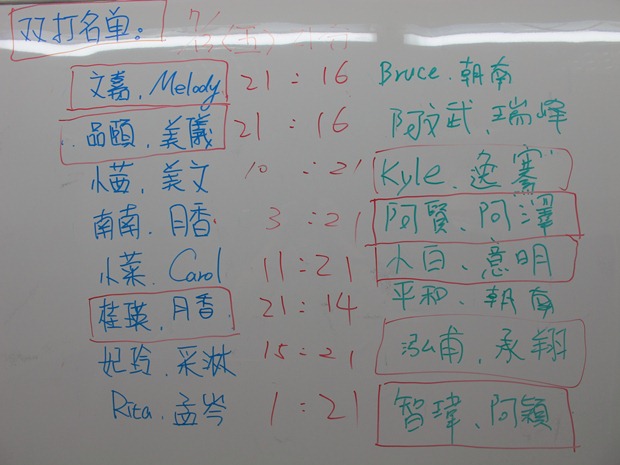 双打名单:
文嘉、Melody 21 : 16 Bruce、朝南
品頤、美儀 21 : 16 阿文武、瑞峰
小茜、美文 10 : 21 Kyle、逸騫
南南、月香 3 : 21 阿賢、阿澤
小菜、Carol 11 : 21 小白、意明
桂瑛、月香 21 : 14 平和、朝南
妃玲、采淋 15 : 21 泓甫、承翔
Rita、孟岑 1 : 21 智瑋、阿穎